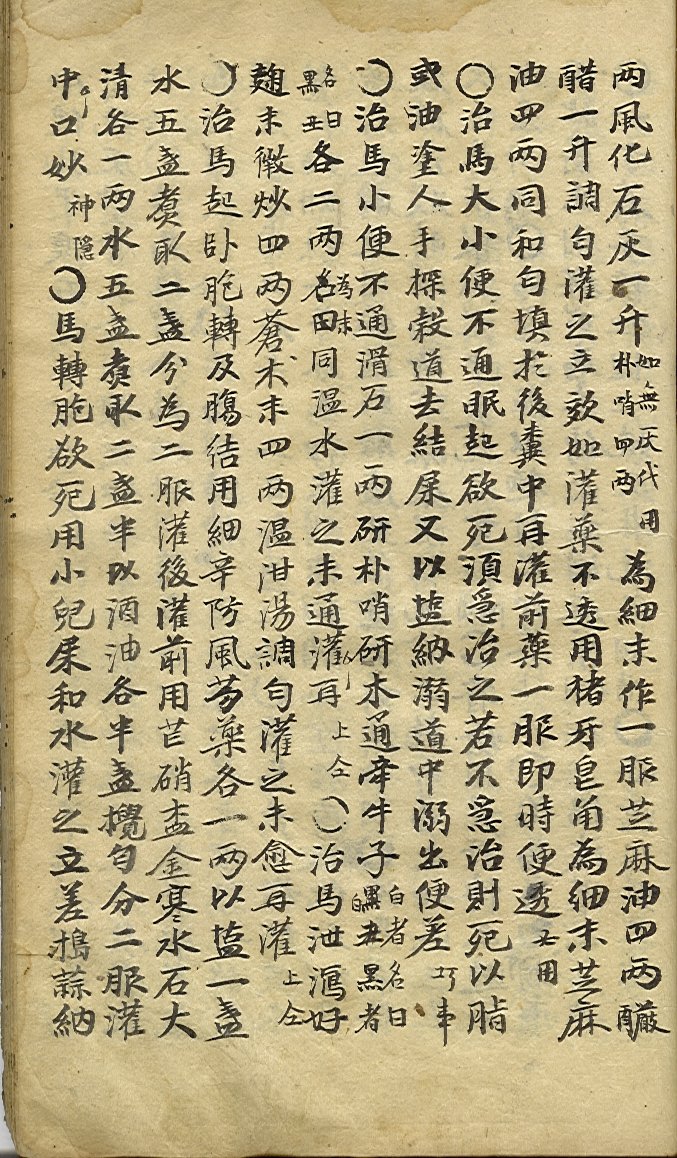 两風化石灰一升如無灰代用朴哨四两為細末作一服芝麻油四两釅
醋一升調勻灌之立效如灌藥不透用猪牙皂角為細末芝麻
油四两同和勻填扵後糞中再灌前藥一服即時便透
○治馬大小便不通眠起欲死湏急治之若不急治則死以脂
或油塗人手探穀道去結屎又以塩納溺道中溺出便差
○治馬小便不通滑石一两研朴哨研木通牵牛子白者名白丑黒者
名曰黒丑各二两為末同温水灌之未通灌再上仝○治馬泄瀉好
麹末微炒四两蒼朮末四两温泔湯調勻灌之未愈再灌上仝
○治馬起卧胞轉及膓結用細辛防風芍藥各一两以塩一盞
水五盞煑取二盞分為二服灌後灌前用芒硝盃金寒水石大
清各一两水五盞煑取二盞半以酒油各半盞攪勻分二服灌
中口妙神隠○馬轉胞欲死用小兒屎和水灌之立差搗蒜納